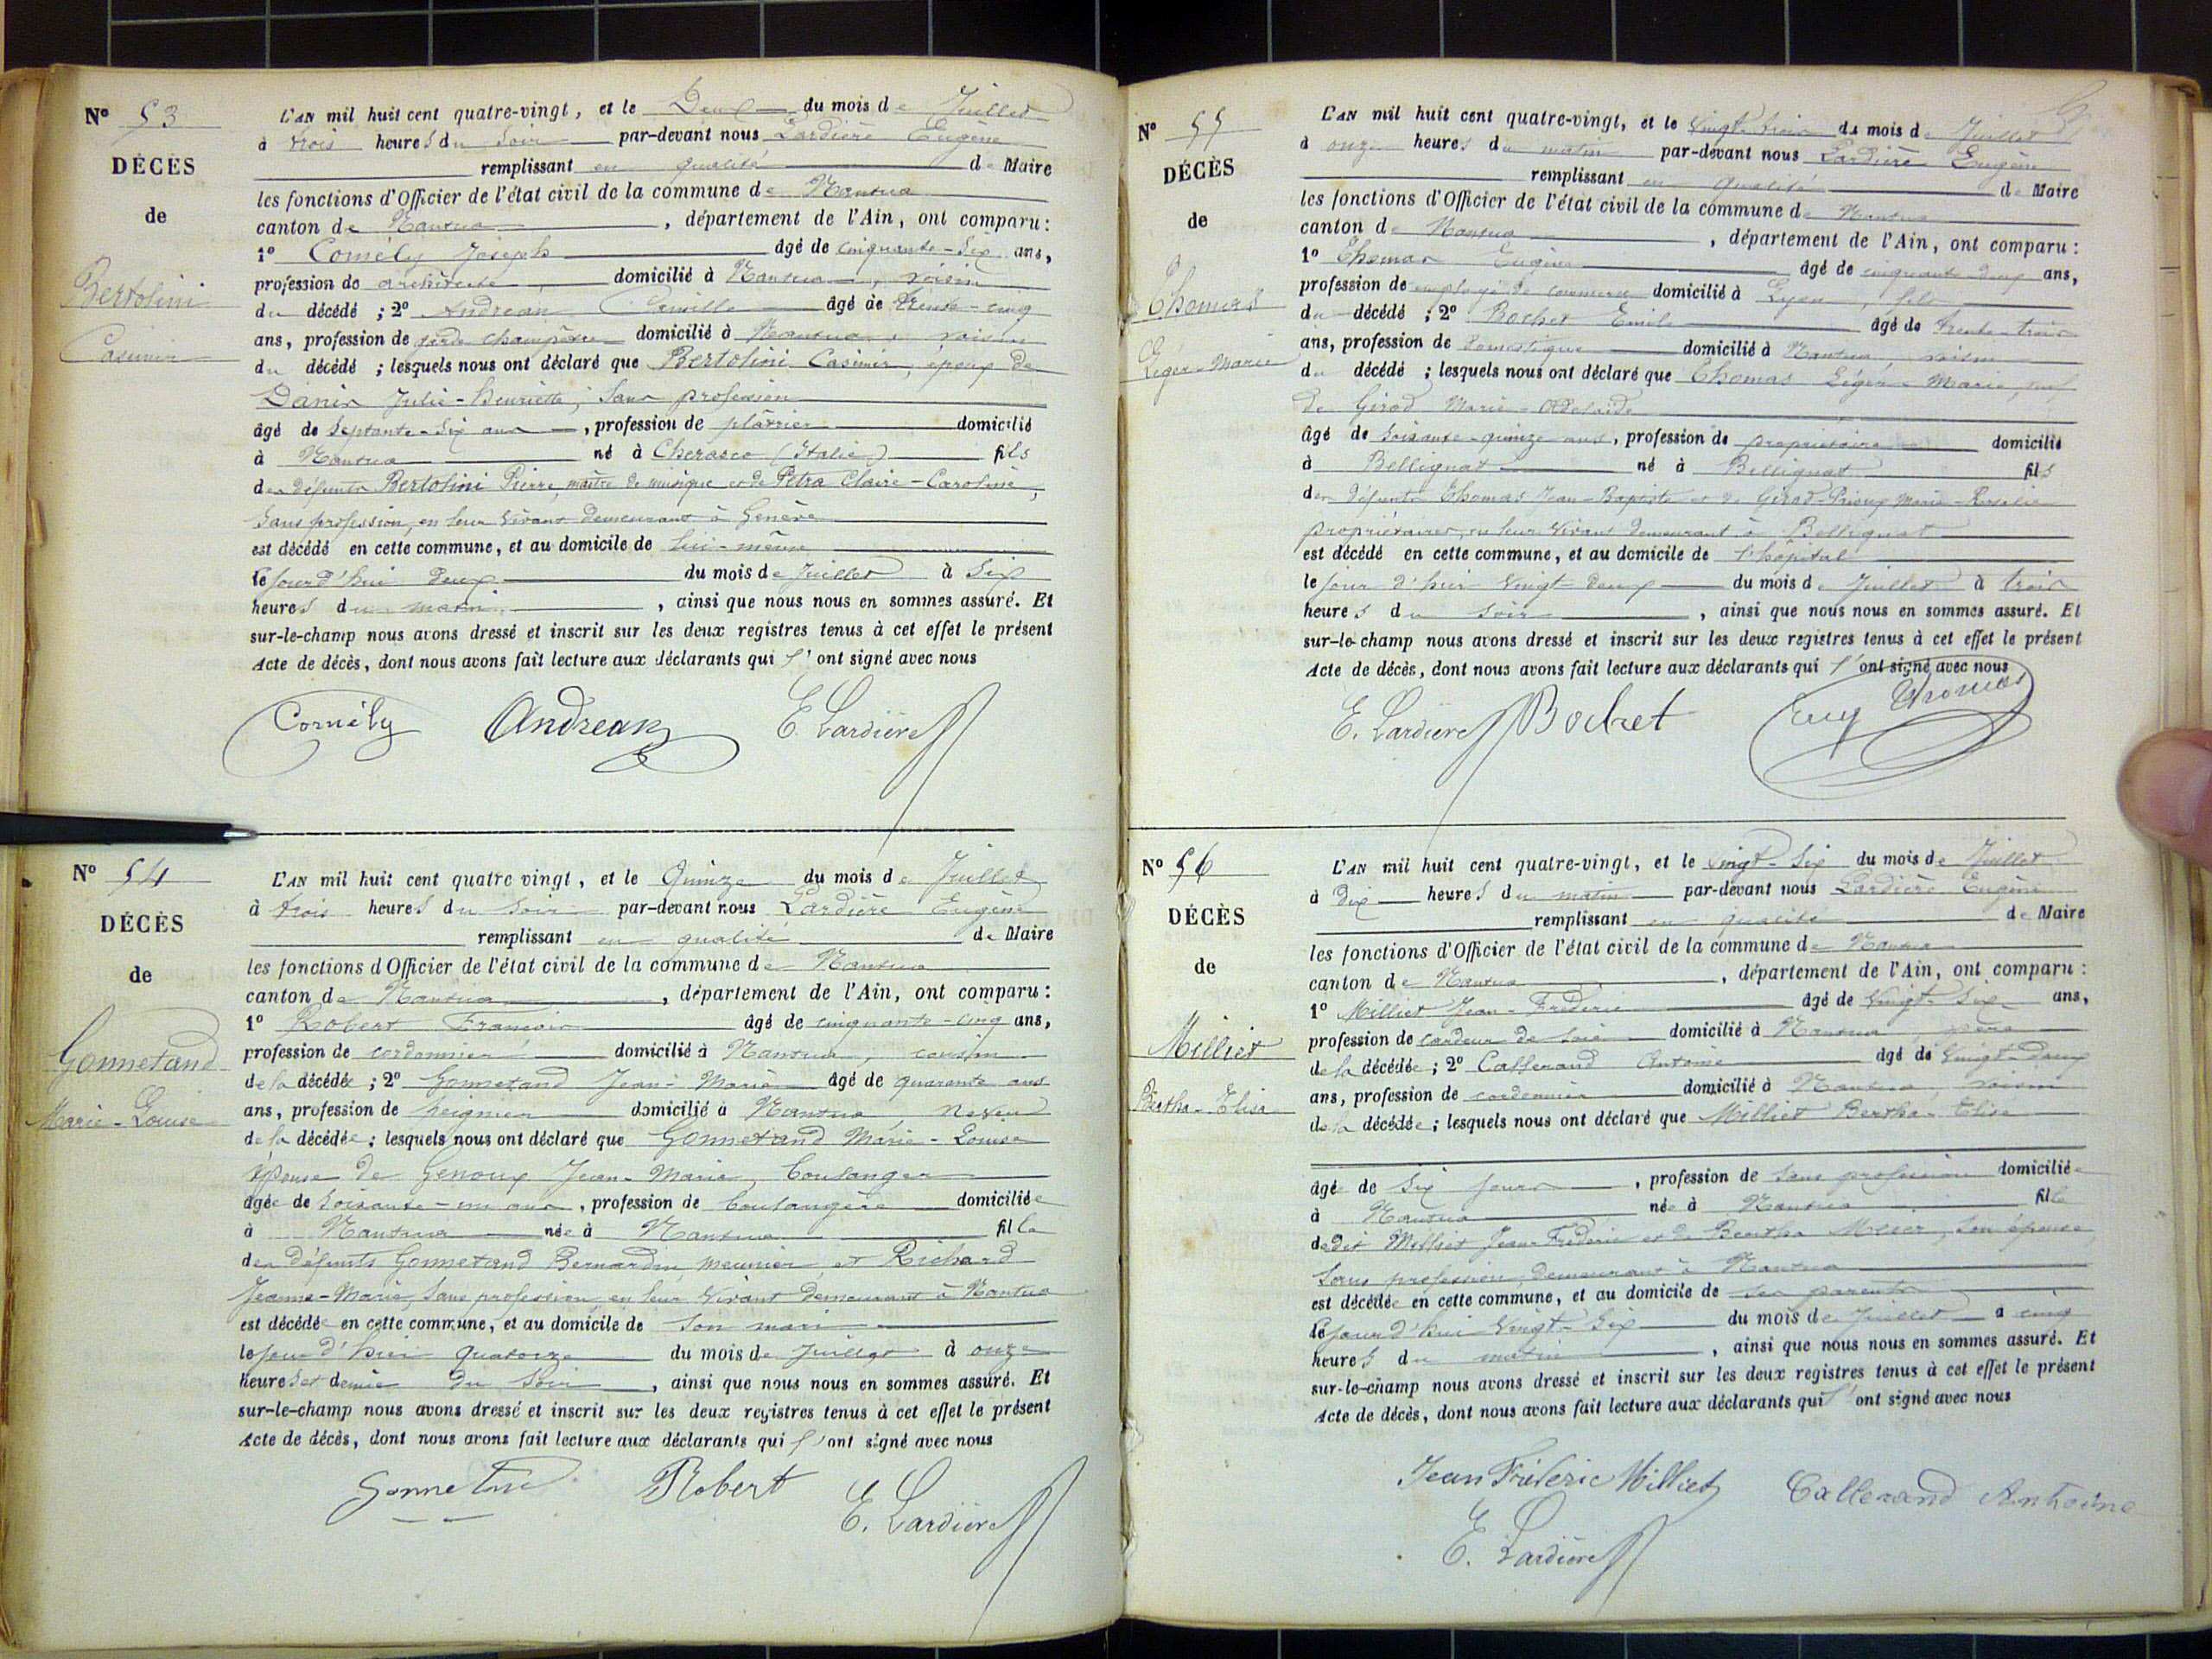 Nº 53
DÉCÈS
de
Bertolini
Casimir
L'AN mil huit cent quatre-vingt, et le Deux du mois de Juillet
à trois heures du soir par-devant nous Lardière Eugène
remplissant en qualité de Maire
les fonctions d'Officier de l'état civil de la commune de Nantua
canton de Nantua, département de l'Ain, ont comparu :
1º Cornély Joseph âgé de cinquante-six ans,
profession de architecte domicilié à Nantua, voisin
du décédé ; 2º Andrean Camille âgé de trente-cinq
ans, profession de garde champêtre domicilié à Nantua, voisin
du décédé ; lesquels nous ont déclaré que Bertolini Casimir, époux de
Danis Julie-Henriette, sans profession
âgé de septante-six ans, profession de plâtrier domicilié
à Nantua né à Cherasco (Italie) fils
des défunts Bertolini Pierre, maître de musique et de Pétra Claire-Caroline,
sans profession, en leur vivant demeurant à Genève
est décédé en cette commune, et au domicile de lui-même
le jourd'hui deux du mois de Juillet à six
heures du matin, ainsi que nous nous en sommes assuré. Et
sur-le-champ nous avons dressé et inscrit sur les deux registres tenus à cet effet le présent
Acte de décès, dont nous avons fait lecture aux déclarants qui l'ont signé avec nous
Cornély Andrean E. Lardière
Nº 54
DÉCÈS
de
Gonnetand
Marie-Louise
L'AN mil huit cent quatre vingt, et le Quinze du mois de Juillet
à trois heures du soir par-devant nous Lardière Eugène
remplissant en qualité de Maire
les fonctions d'Officier de l'état civil de la commune de Nantua
canton de Nantua, département de l'Ain, ont comparu :
1º Robert François âgé de cinquante-cinq ans,
profession de cordonnier domicilié à Nantua, cousin
de la décédée ; 2º Gonnetand Jean-Marie âgé de quarante ans
ans, profession de peigneur domicilié à Nantua, neveu
de la décédée ; lesquels nous ont déclaré que Gonnetand Marie-Louise
épouse de Genoux Jean-Marie, boulanger
âgée de soixante-un ans, profession de boulangère domiciliée
à Nantua née à Nantua fille
des défunts Gonnetand Bernardin meunier et Richard
Jeanne-Marie, sans profession, en leur vivant demeurant à Nantua
est décédée en cette commune, et au domicile de son mari
le jour d'hier quatorze du mois de Juillet à onze
heures et demie du soir, ainsi que nous nous en sommes assuré. Et
sur-le-champ nous avons dressé et inscrit sur les deux registres tenus à cet effet le présent
Acte de décès, dont nous avons fait lecture aux déclarants qui l'ont signé avec nous
Robert E. Lardière
Nº 55
DÉCÈS
de
Thomas
Léger-Marie
L'AN mil huit cent quatre-vingt, et le vingt-trois du mois de Juillet
à onze heures du matin par-devant nous Lardière Eugène
remplissant en qualité de Maire
les fonctions d'Officier de l'état civil de la commune de Nantua
canton de Nantua, département de l'Ain, ont comparu :
1º Thomas Eugène âgé de cinquante-deux ans,
profession de employé de commerce domicilié à Lyon, fils
du décédé ; 2º Bochet Emile âgé de trente-trois
ans, profession de domestique domicilié à Nantua, voisin
du décédé ; lesquels nous ont déclaré que Thomas Léger-Marie, veuf
de Girod Marie-Adelaïde
âgé de soixante-quinze ans, profession de propriétaire domicilié
à Bellignat né à Bellignat fils
des défunts Thomas Jean-Baptiste et de Girod-Prieux Marie-Rosalie
propriétaires, en leur vivant demeurant à Bellignat
est décédé en cette commune, et au domicile de l'hopital
le jour d'hier vingt deux du mois de Juillet à trois
heures du soir, ainsi que nous nous en sommes assuré. Et
sur-le-champ nous avons dressé et inscrit sur les deux registres tenus à cet effet le présent
Acte de décès, dont nous avons fait lecture aux déclarants qui l'ont signé avec nous
E. Lardière Bochet Eug Thomas
Nº 56
DÉCÈS
de
Milliet
Bertha-Elisa
L'AN mil huit cent quatre-vingt, et le vingt-six du mois de Juillet
à Dix heures du matin par-devant nous Lardière Eugène
remplissant en qualité de Maire
les fonctions d'Officier de l'état civil de la commune de Nantua
canton de Nantua, département de l'Ain, ont comparu :
1º Milliet Jean-Frédéric âgé de vingt-six ans,
profession de cardeur de soie domicilié à Nantua, père
de la décédée ; 2º Callerand Antoine âgé de vingt-deux
ans, profession de cordonnier domicilié à Nantua, voisin
de la décédée ; lesquels nous ont déclaré que Milliet Bertha-Elisa
âgée de six jours, profession de sans profession domiciliée
à Nantua née à Nantua fille
dudit Milliet Jean Frédéric et de Bertha Meier, son épouse,
sans profession, demeurant à Nantua
est décédée en cette commune, et au domicile de ses parents
le jourd'hui vingt-six du mois de Juillet à cinq
heures du matin, ainsi que nous nous en sommes assuré. Et
sur-le-champ nous avons dressé et inscrit sur les deux registres tenus à cet effet le présent
Acte de décès, dont nous avons fait lecture aux déclarants qui l'ont signé avec nous
Jean Fréderic Milliet Callerand Antoine
E. Lardière